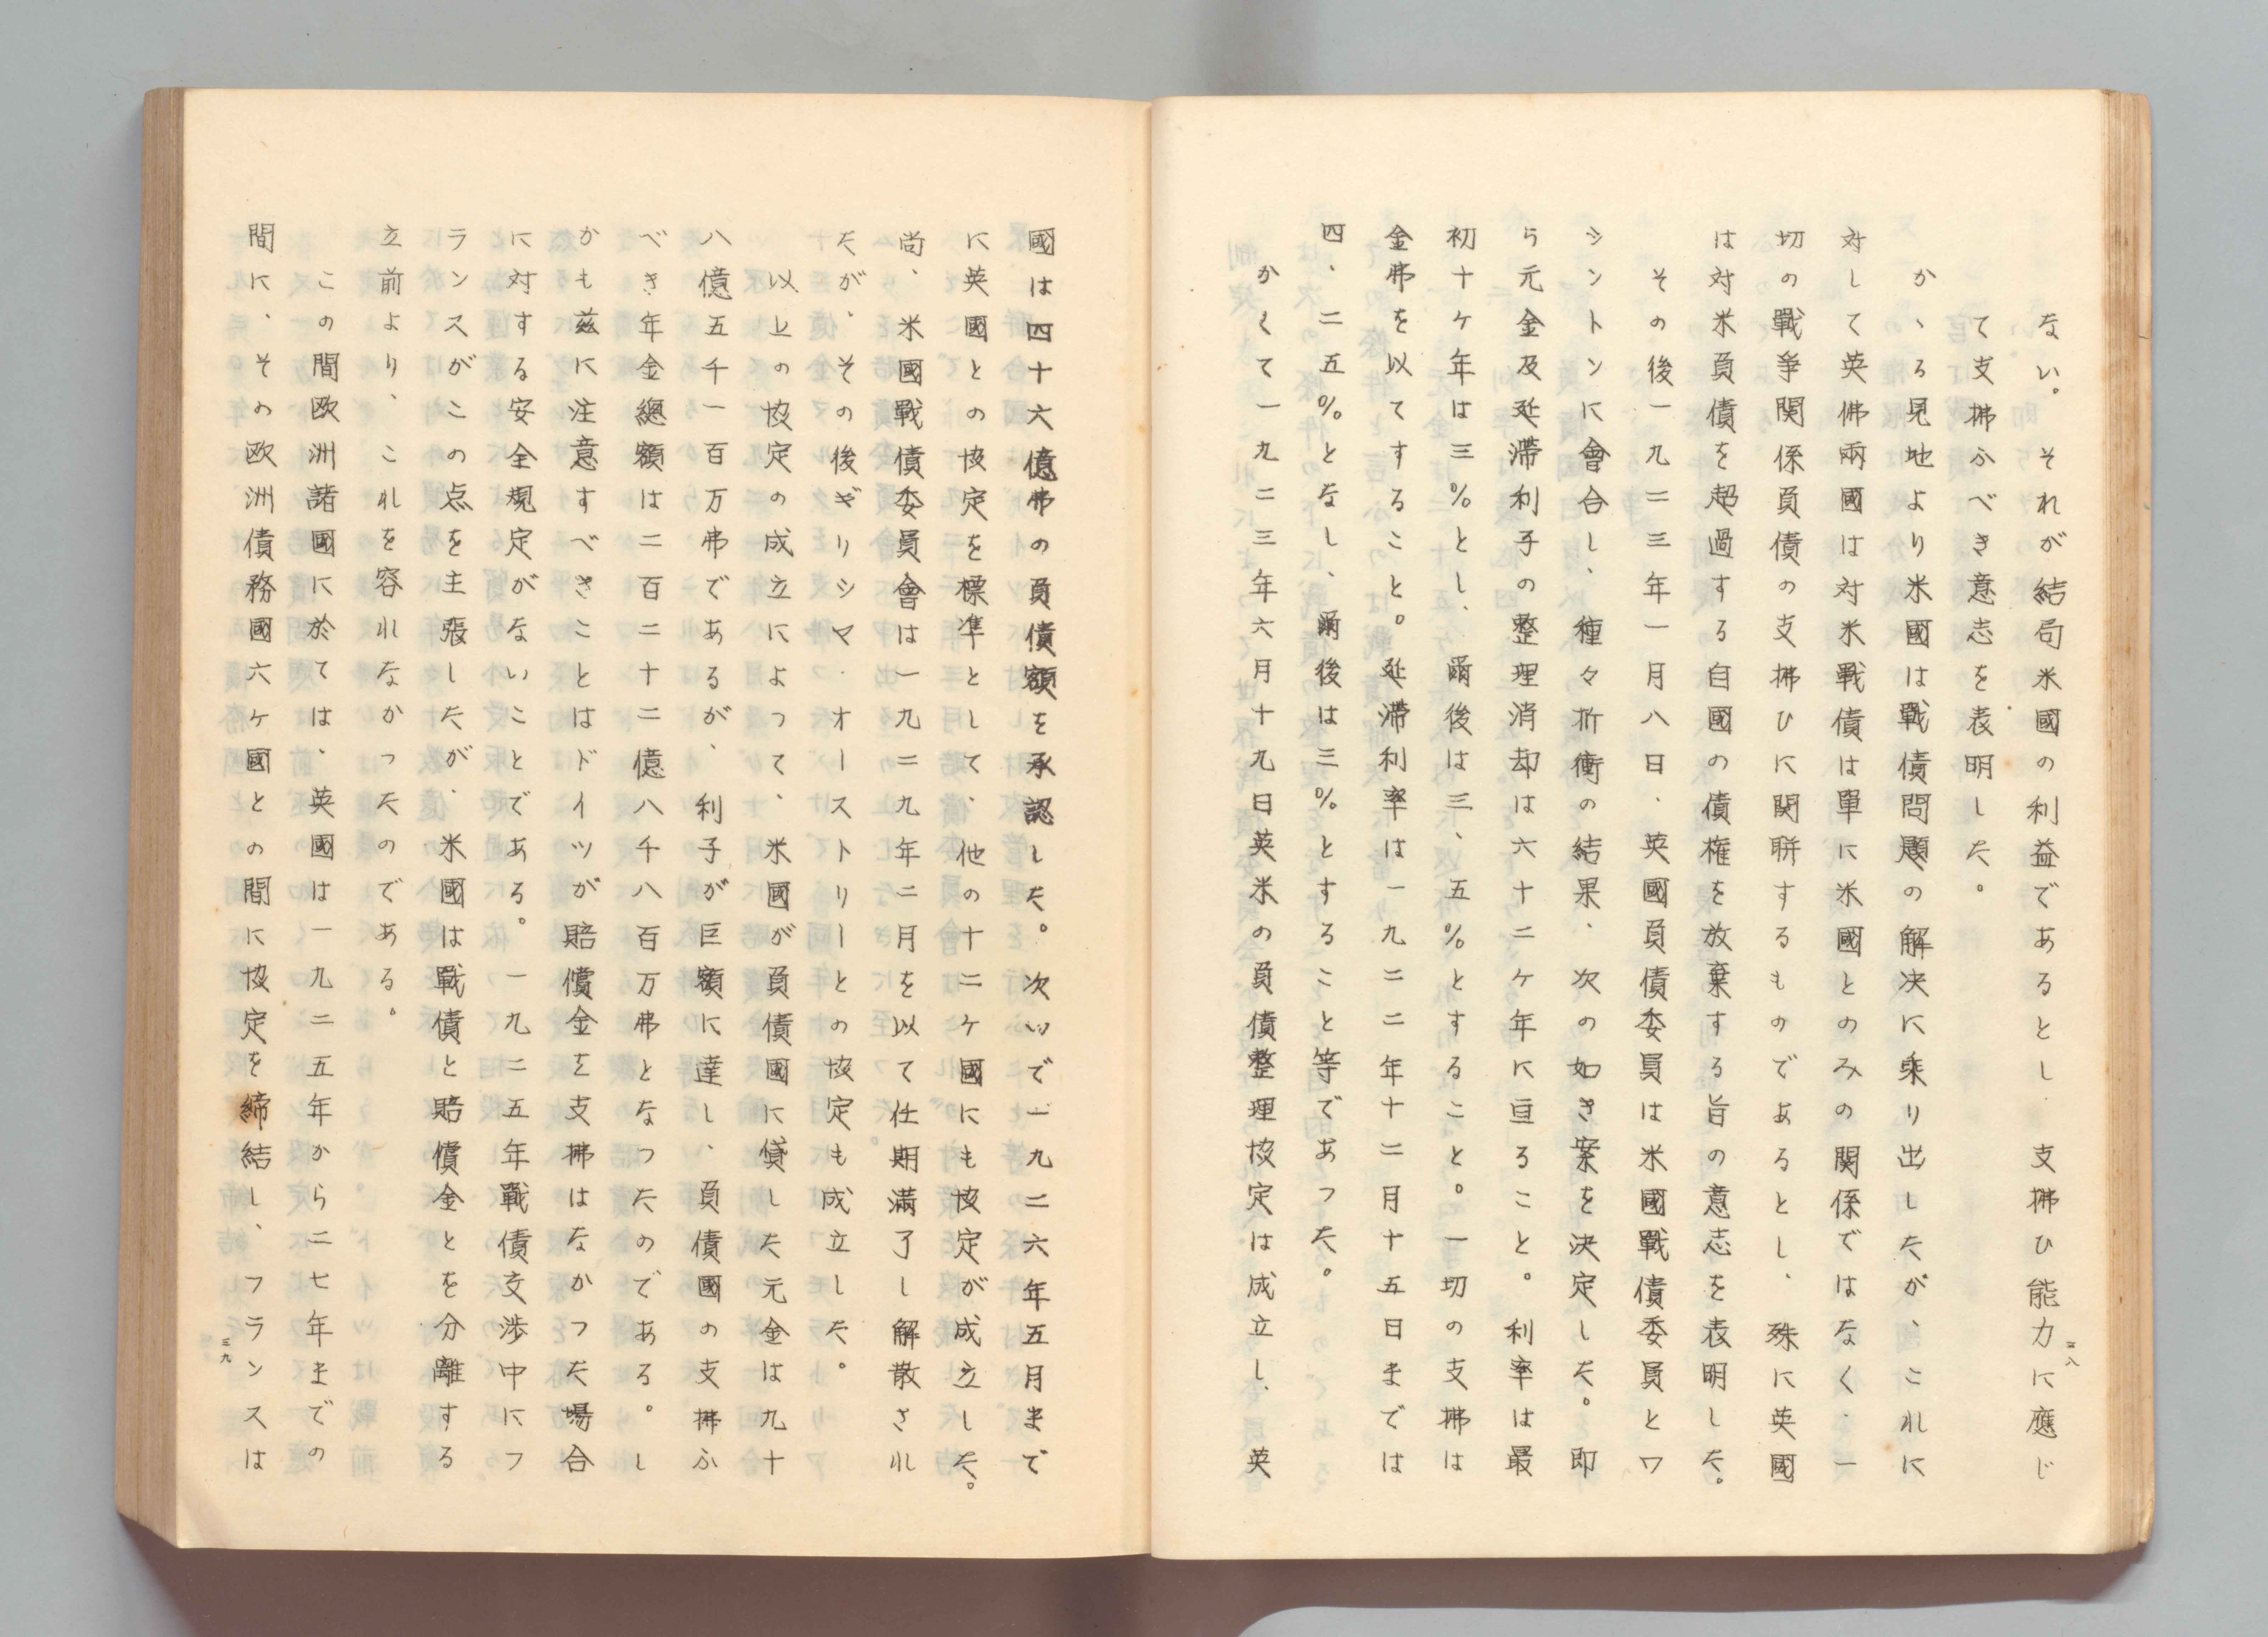 ない。それが結局米國の利益であるとし、支拂ひ能力に應じ
て支拂ふべき意志を表明した。
かゝる見地より米國は戰債問題の解决に乗り出したが、これに
対して英佛兩國は対米戰債は單に米國とのみの関係ではなく、一
切の戰争関係負債の支拂ひに関聨するものであるとし、殊に英國
は対米負債を超過する自國の債権を放棄する旨の意志を表明した。
その後一九二三年一月八日、英國負債委員は米國戰債委員とワ
シントンに會合し、種々折衝の結果、次の如き案を決定した。即
ら元金及延滯利子の整理消却は六十二ケ年に亘ること。利率は最
初十ケ年は三%とし、爾後は三、五%とすること。一切の支拂は
金弗を以てすること。延滯利率は一九二二年十二月十五日までは
四、二五%となし、爾後は三%とすること等であった。
かくて一九二三年六月十九日英米の負債整理协定は成立し、英
三八
國は四十六億弗の負債額を承認した。次いで一九二六年五月まで
に英國との协定を標準として、他の十二ケ國にも协定が成立した。
尚、米國戰債委員會は一九二九年二月を以て任期滿了し解散され
たが、その後ギリシマ・オーストリーとの协定も成立した。
以上の协定の成立によって、米國が負債國に貸した元金は九十
八億五千一百万弗であるが、利子が巨額に達し、負債國の支拂ふ
べき年金總額は二百二十二億八千八百万弗となつたのである。し
かも茲に注意すべきことはドイツが賠償金を支拂はなかつた場合
に対する安全規定がないことである。一九二五年戰債交渉中にフ
ランスがこの点を主張したが、米國は戰債と賠償金とを分離する
立前より、これを容れなかったのである。
この間欧洲諸國に於ては、英國は一九二五年から二七年までの
間に、その欧洲債務國六ケ國との間に协定を締結し、フランスは
三九